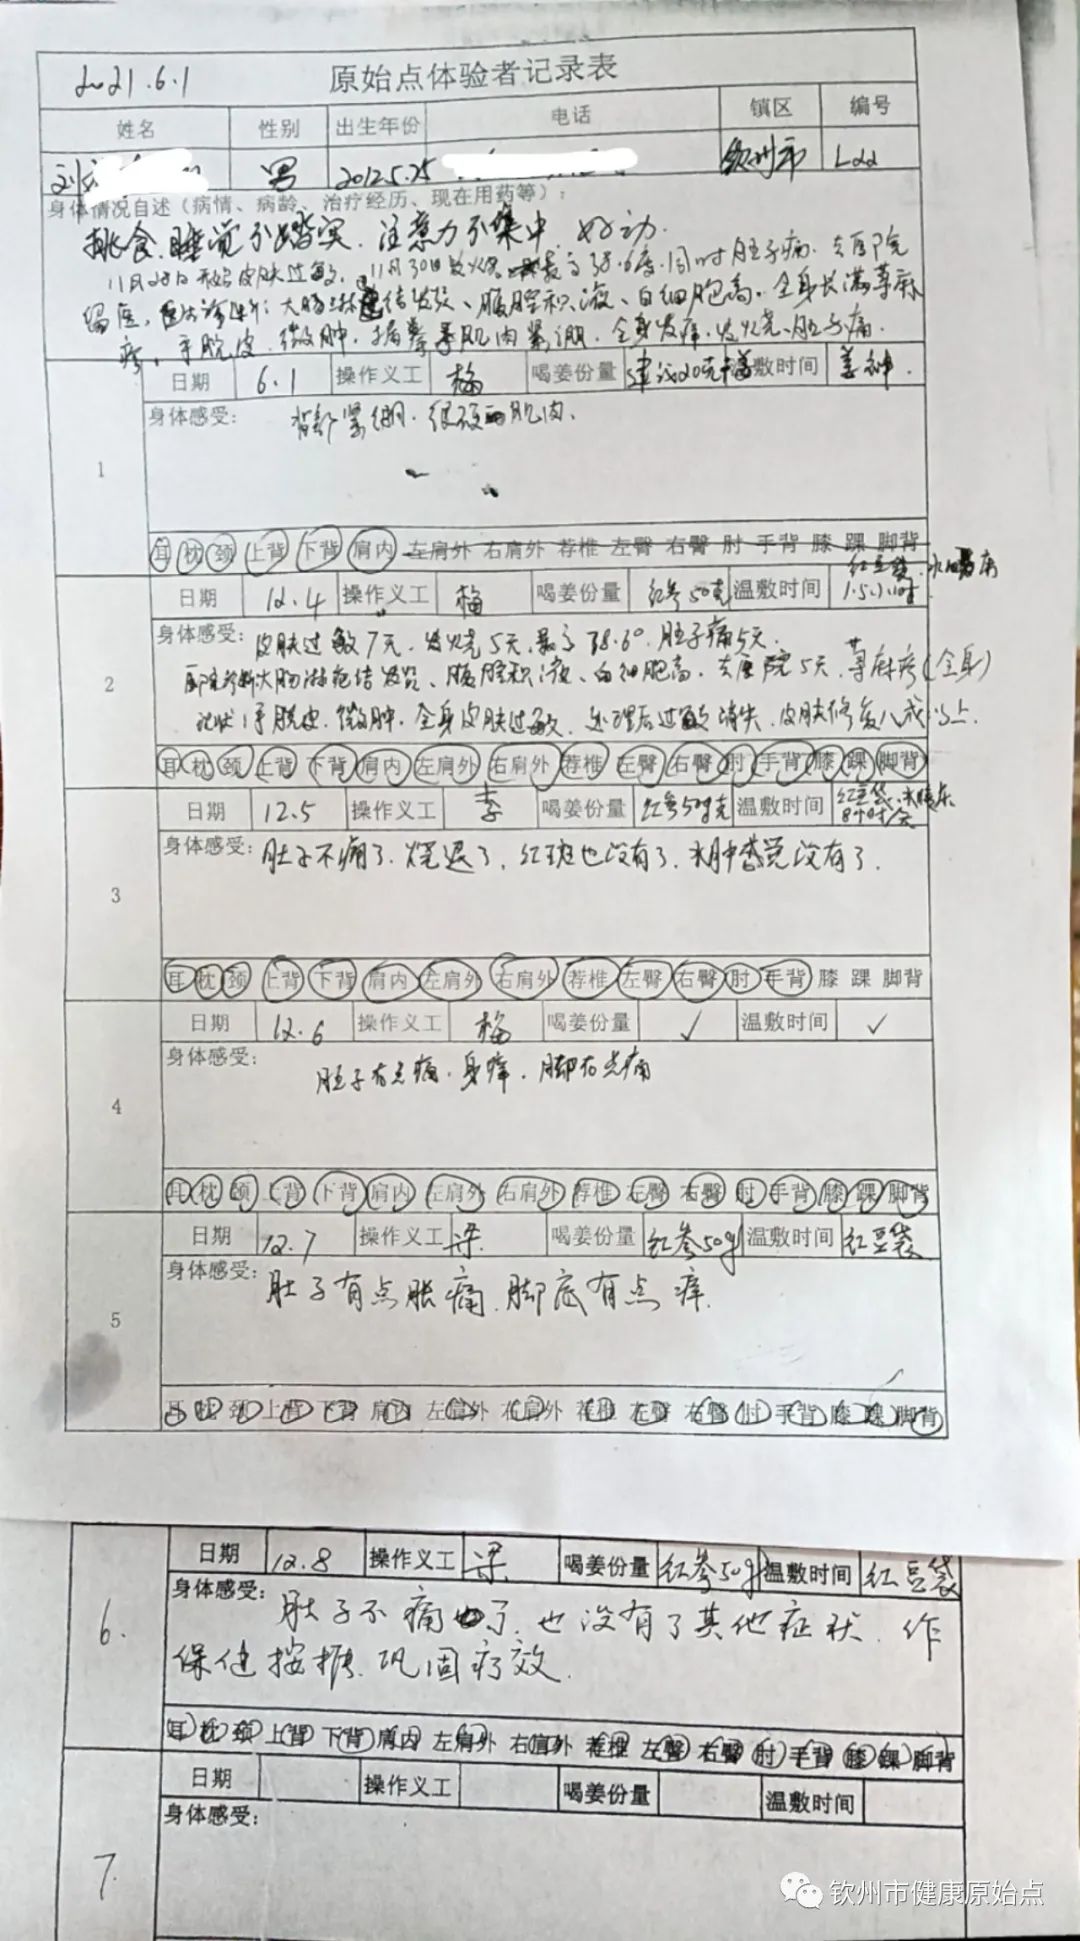 2021.6.1 原始点体验者记录表
姓名 性别 出生年份 电话 镇区 编号
刘 男 2012.5.25 钦州市
身体情况自述（病情、病龄、治疗经历、现在用药等）：
挑食、睡觉不踏实、注意力不集中、好动.
11月28日开始皮肤过敏, 11月30日发火烧 最高38.6度.同时肚子痛.去医院
留医, 医院诊断: 大肠淋巴结发炎、腹腔积液、白细胞高.全身长满荨麻
疹, 手脱皮.微肿. 肌肉紧绷.全身发痒.发火烧.肚子痛.
日期 6.1 操作义工 梅 喝姜份量 温敷时间
身体感受： 背部紧绷.很硬 肌肉.
1
耳 枕 颈 上背 下背 肩内 左肩外 右肩外 荐椎 左臀 右臀 肘 手背 膝 踝 脚背
红豆袋
日期 12.4 操作义工 梅 喝姜份量 红参50克 温敷时间
身体感受： 皮肤过敏7天.发火烧5天.最高38.6°.肚子痛5天.
2
医院诊断大肠淋巴结发炎、腹腔积液、白细胞高.去医院5天.荨麻疹(全身)
症状:手脱皮.微肿.全身皮肤过敏.处理后过敏消失.皮肤修复八成以上.
耳 枕 颈 上背 下背 肩内 左肩外 右肩外 荐椎 左臀 右臀 肘 手背 膝 踝 脚背
日期 12.5 操作义工 李 喝姜份量 温敷时间 红豆袋
身体感受： 肚子不痛了.烧退了.红斑也没有了.水肿 没有了.
3
耳 枕 颈 上背 下背 肩内 左肩外 右肩外 荐椎 左臀 右臀 肘 手背 膝 踝 脚背
日期 12.6 操作义工 梅 喝姜份量 ✓ 温敷时间 ✓
身体感受： 肚子有点痛.身痒.脚有点痛
4
耳 枕 颈 上背 下背 肩内 左肩外 右肩外 荐椎 左臀 右臀 肘 手背 膝 踝 脚背
日期 12.7 操作义工 梁 喝姜份量 红参50g 温敷时间 红豆袋
身体感受： 肚子有点胀痛.脚底有点痒.
5
耳 枕 颈 上背 下背 肩内 左肩外 右肩外 荐椎 左臀 右臀 肘 手背 膝 踝 脚背
日期 12.8 操作义工 梁 喝姜份量 红参50g 温敷时间 红豆袋
身体感受： 肚子不痛了.也没有了其他症状.作
6.
保健按推.巩固疗效.
耳 枕 颈 上背 下背 肩内 左肩外 右肩外 荐椎 左臀 右臀 肘 手背 膝 踝 脚背
日期 操作义工 喝姜份量 温敷时间
身体感受：
7.
钦州市健康原始点